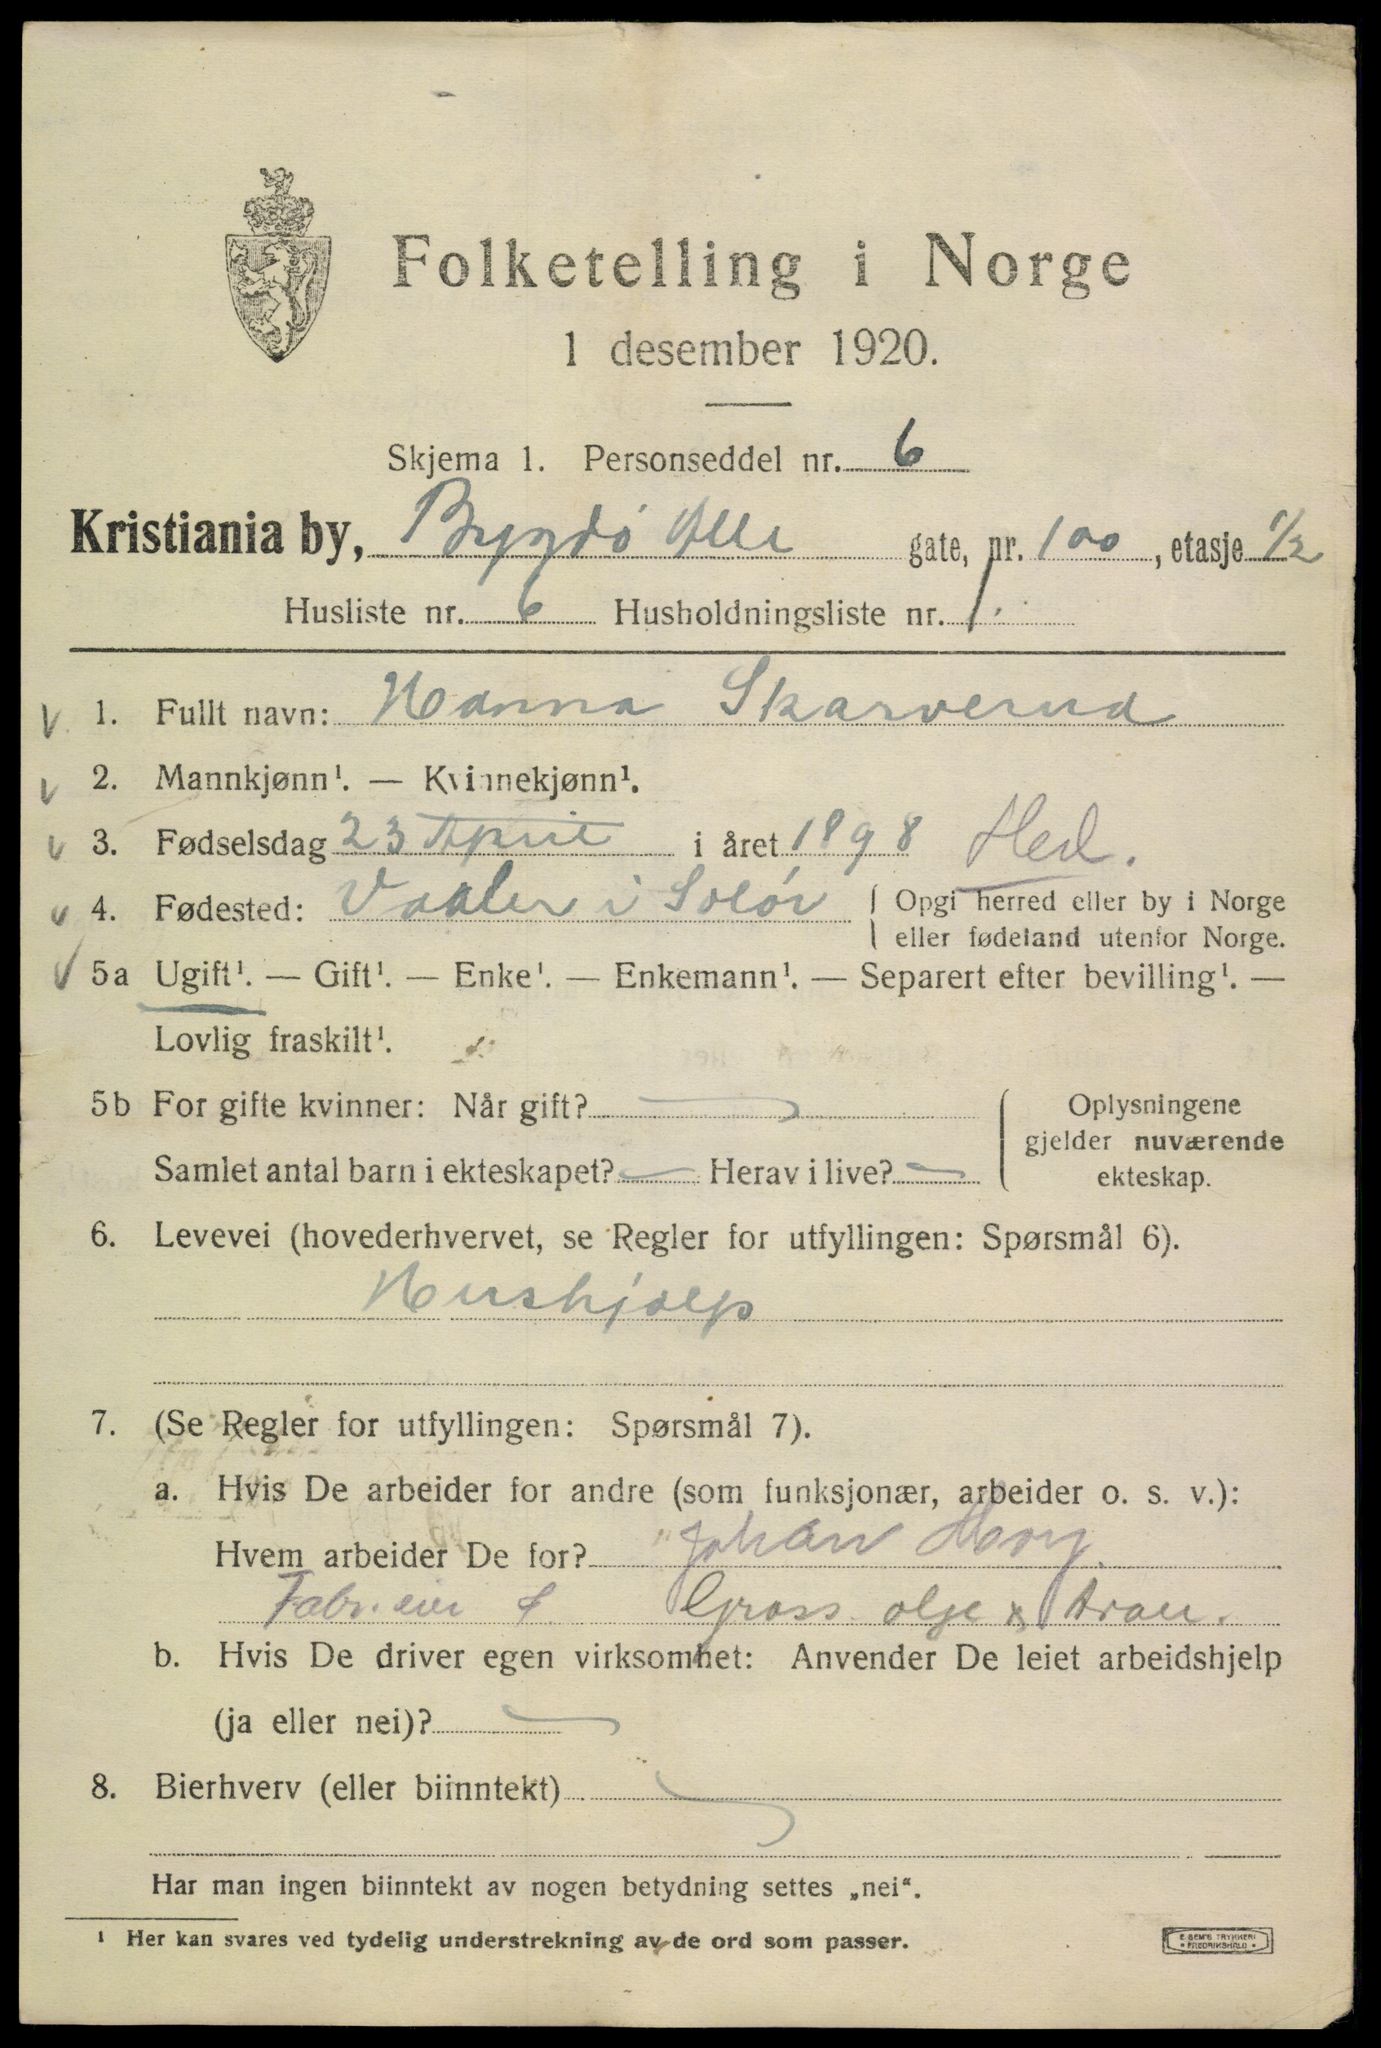 Folketelling i Norge
1 desember 1920.
Skjema 1. Personseddel nr. 6
Kristiania by, Bygdö Alle gate, nr. 100, etasje 1/2
Husliste nr. 6 Husholdningsliste nr. 1.
1. Fullt navn: Hanna Skarverud
2. Mannkjønn¹. — Kvinnekjønn¹.
3. Fødselsdag 23 April i året 1898 Hed.
4. Fødested: Vaaler i Solör { Opgi herred eller by i Norge
eller fødeland utenfor Norge.
5a Ugift¹. — Gift¹. — Enke¹. — Enkemann¹. — Separert efter bevilling¹. —
Lovlig fraskilt¹.
5b For gifte kvinner: Når gift? { Oplysningene
gjelder nuværende
Samlet antal barn i ekteskapet? Herav i live? ekteskap.
6. Levevei (hovederhvervet, se Regler for utfyllingen: Spørsmål 6).
Hushjælp
7. (Se Regler for utfyllingen: Spørsmål 7).
a. Hvis De arbeider for andre (som funksjonær, arbeider o. s. v.):
Hvem arbeider De for? Johan
Gross.
b. Hvis De driver egen virksomhet: Anvender De leiet arbeidshjelp
(ja eller nei)?
8. Bierhverv (eller biinntekt)
Har man ingen biinntekt av nogen betydning settes „nei“.
¹ Her kan svares ved tydelig understrekning av de ord som passer.
E. SEM'S TRYKKERI
• FREDRIKSHALD •